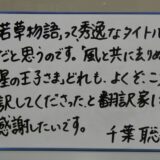 「若草物語」って秀逸なタイトル
だと思うのです。「風と共に去りぬ」
「星の王子さま」どれも、よくぞ、こう
訳してくださった、と翻訳家に
感謝したいです。
千葉 聡